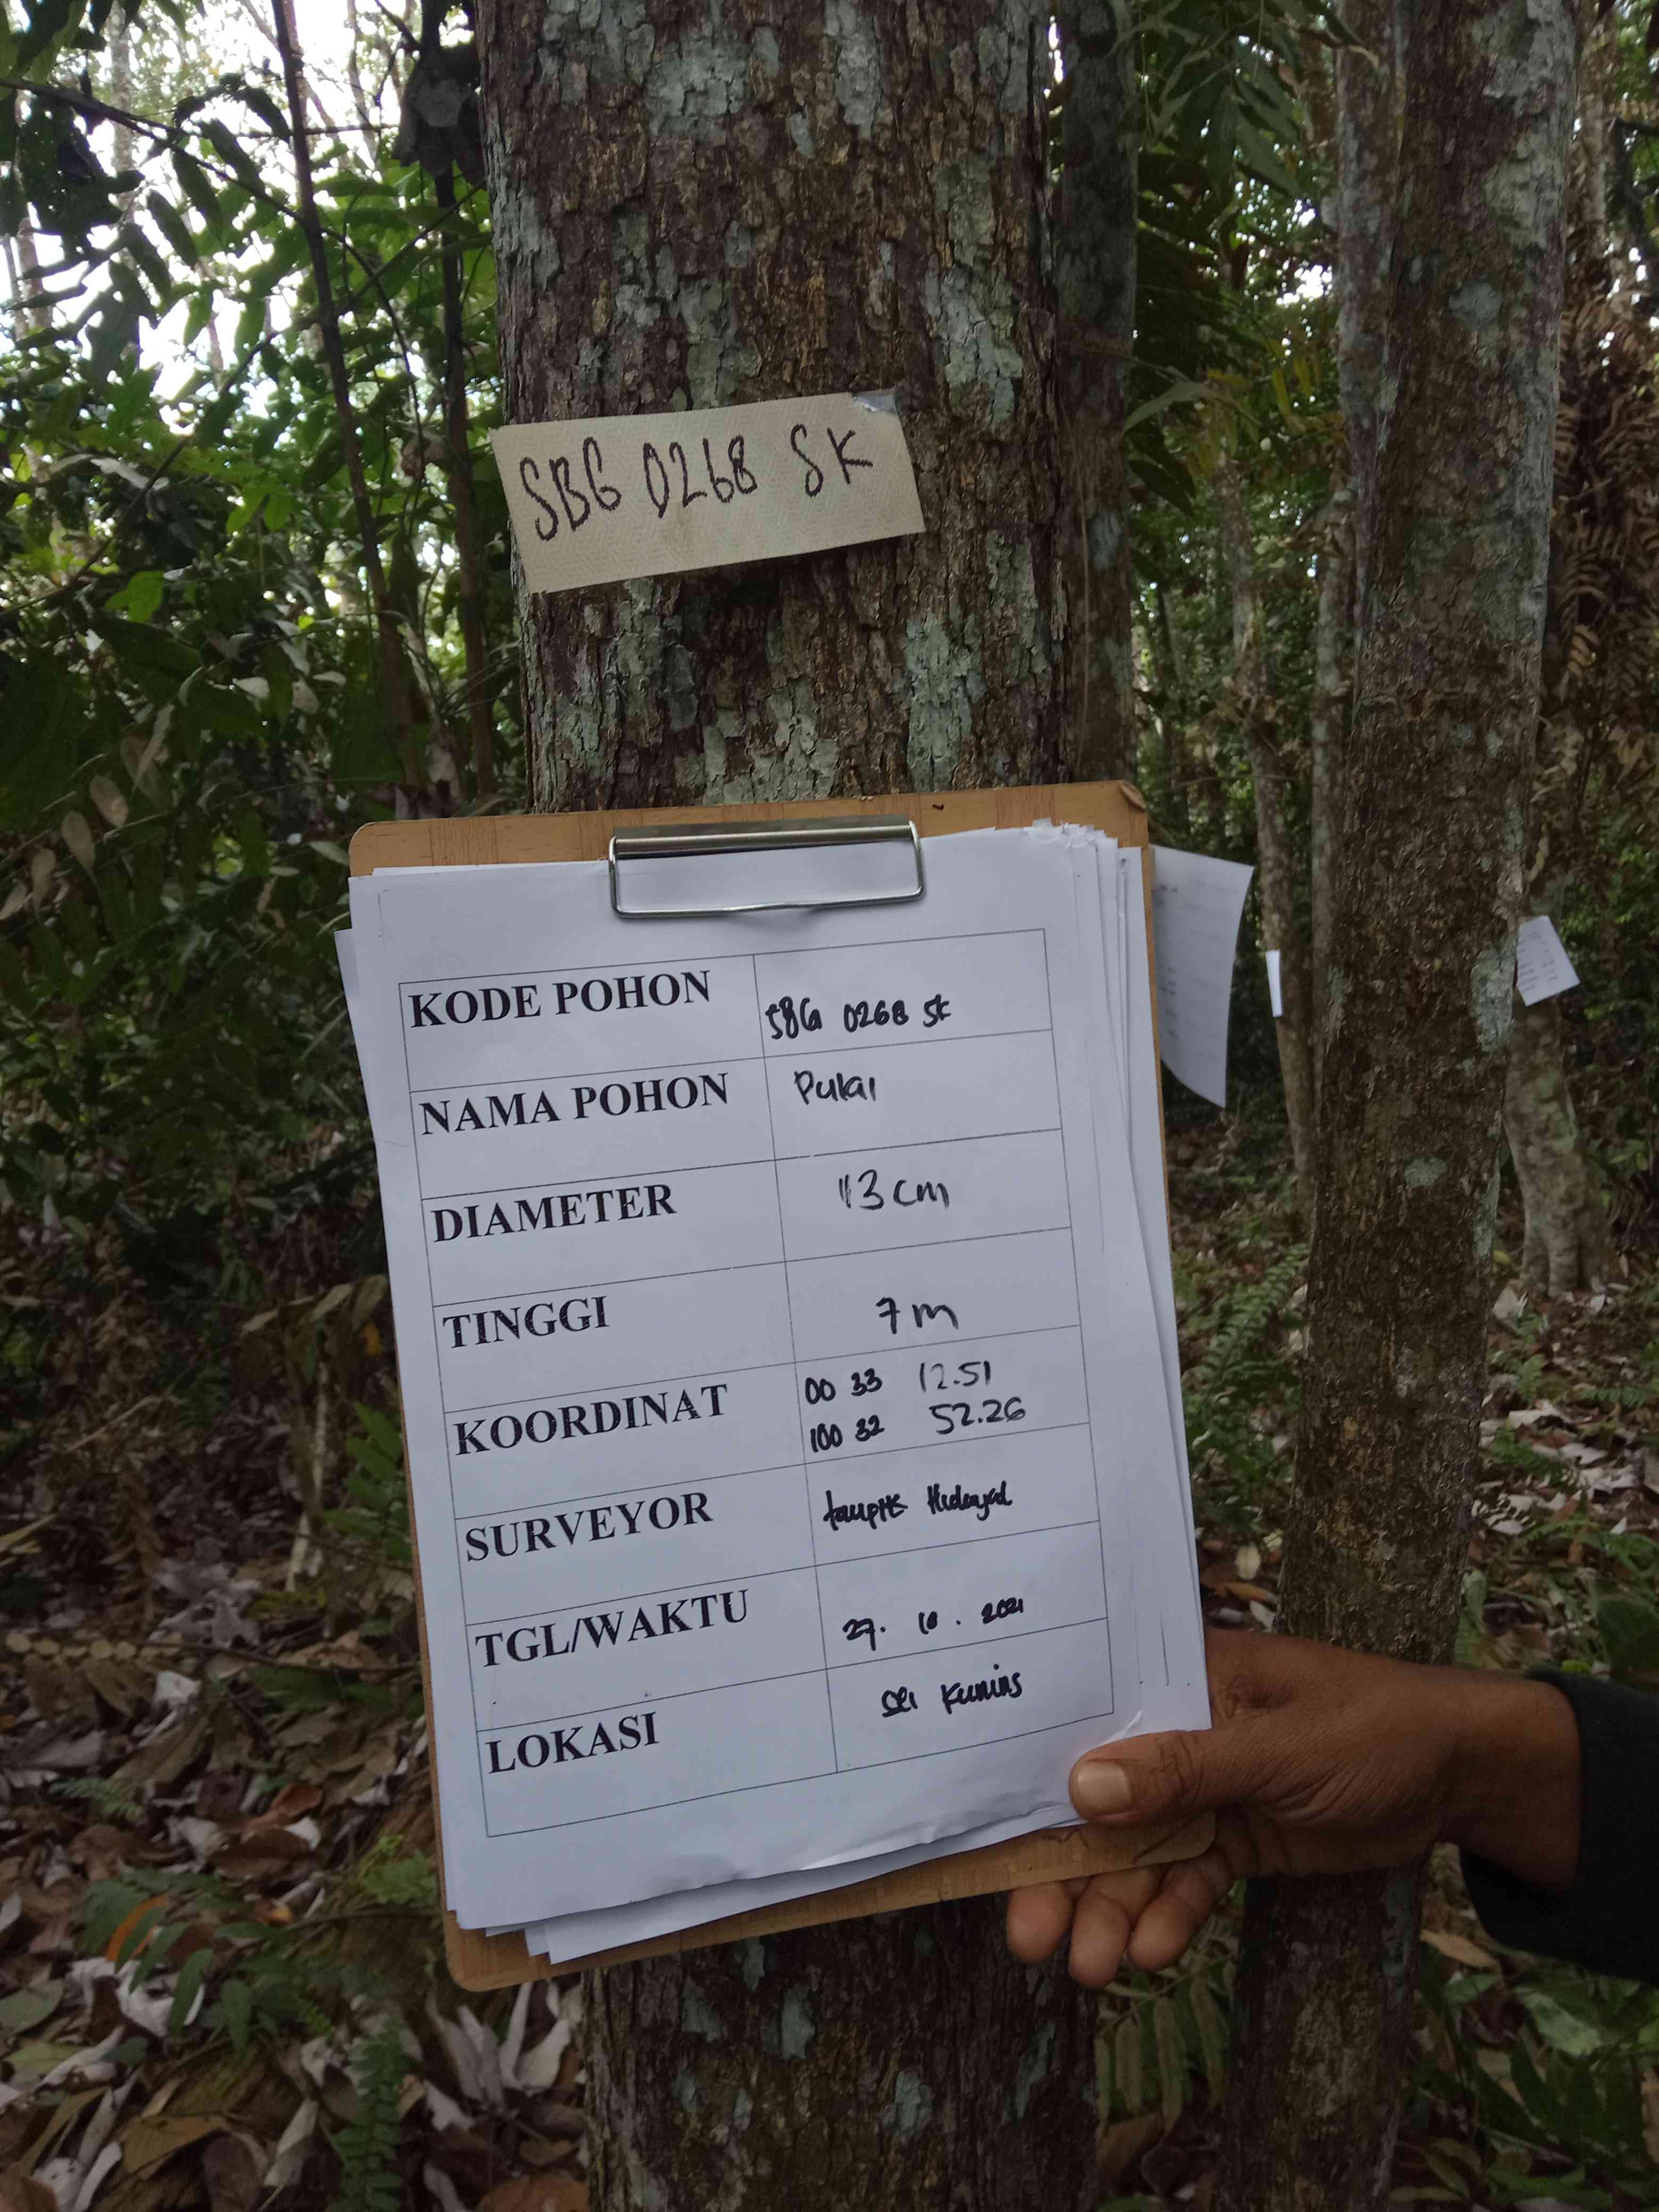 SBG 0268 SK
KODE POHON SBG 0268 SK
NAMA POHON Pulai
DIAMETER 13 cm
TINGGI 7 m
KOORDINAT 00 33 12.51
100 32 52.26
SURVEYOR Hidayat
TGL/WAKTU 27. 10. 2021
LOKASI sei Kuning